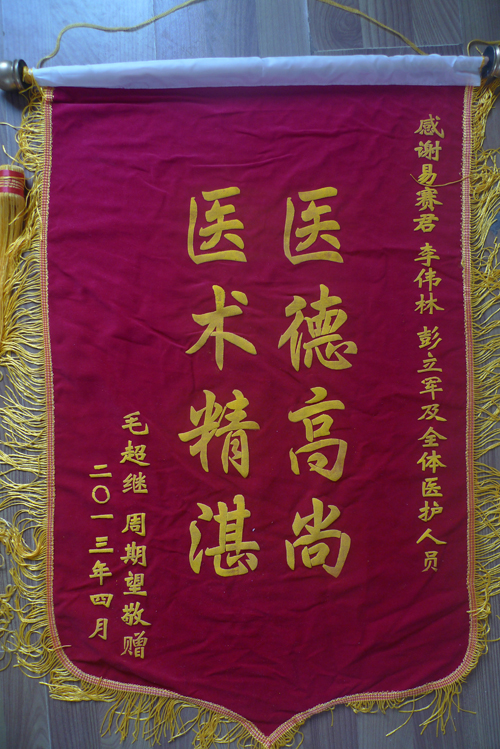 感谢易赛君 李伟林 彭立军及全体医护人员
医德高尚
医术精湛
毛超继 周期望敬赠
二〇一三年四月